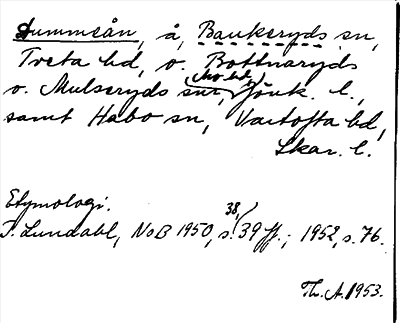 Hummeån, å, Bankeryds sn,
Tveta hd, o. Bottnaryds
o. Mulseryds snr, Mo hd, Jönk. l.,
samt Habo sn, Vartofta hd,
Skar. l.
Etymologi.
I. Lundahl, NoB 1950, s. 38, 39 ff.; 1952, s. 76.
Th. A. 1953.